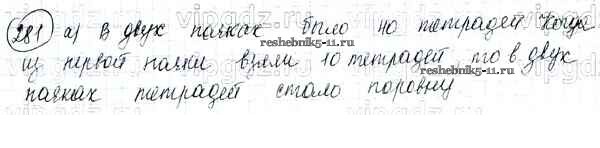 281 а) В двух пачках было но тетрадей Когда
из первой пачки взяли 10 тетрадей то в двух
пачках тетрадей стало поровну
reshebnik5-11.ru
reshebnik5-11.ru